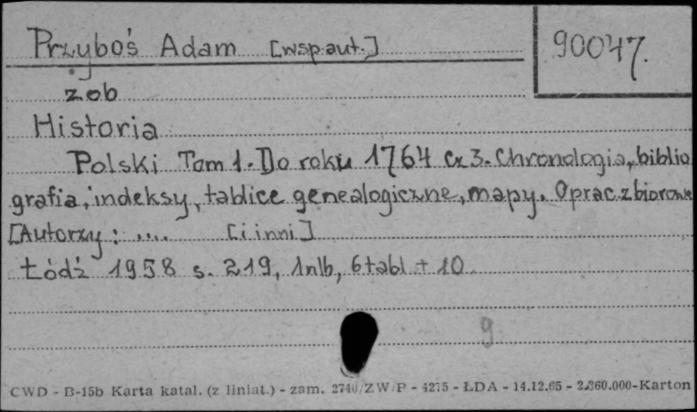 Przyboś Adam [wsp.aut.]
90047.
zob
Historia
Polski Tom 1. Do roku 1764 Cz 3. Chronologia, biblio
grafia, indeksy, tablice genealogiczne, mapy. Oprac. zbiorowe
[Autorzy: .... [i inni]
Łódź 1958 s. 219, 1nlb, 6 tabl + 10
9
CWD - B-15b Karta katal. (z liniat.) - zam. 2740/ZW/P - 4275 - ŁDA - 14.12.65 - 2.360.000-Karton